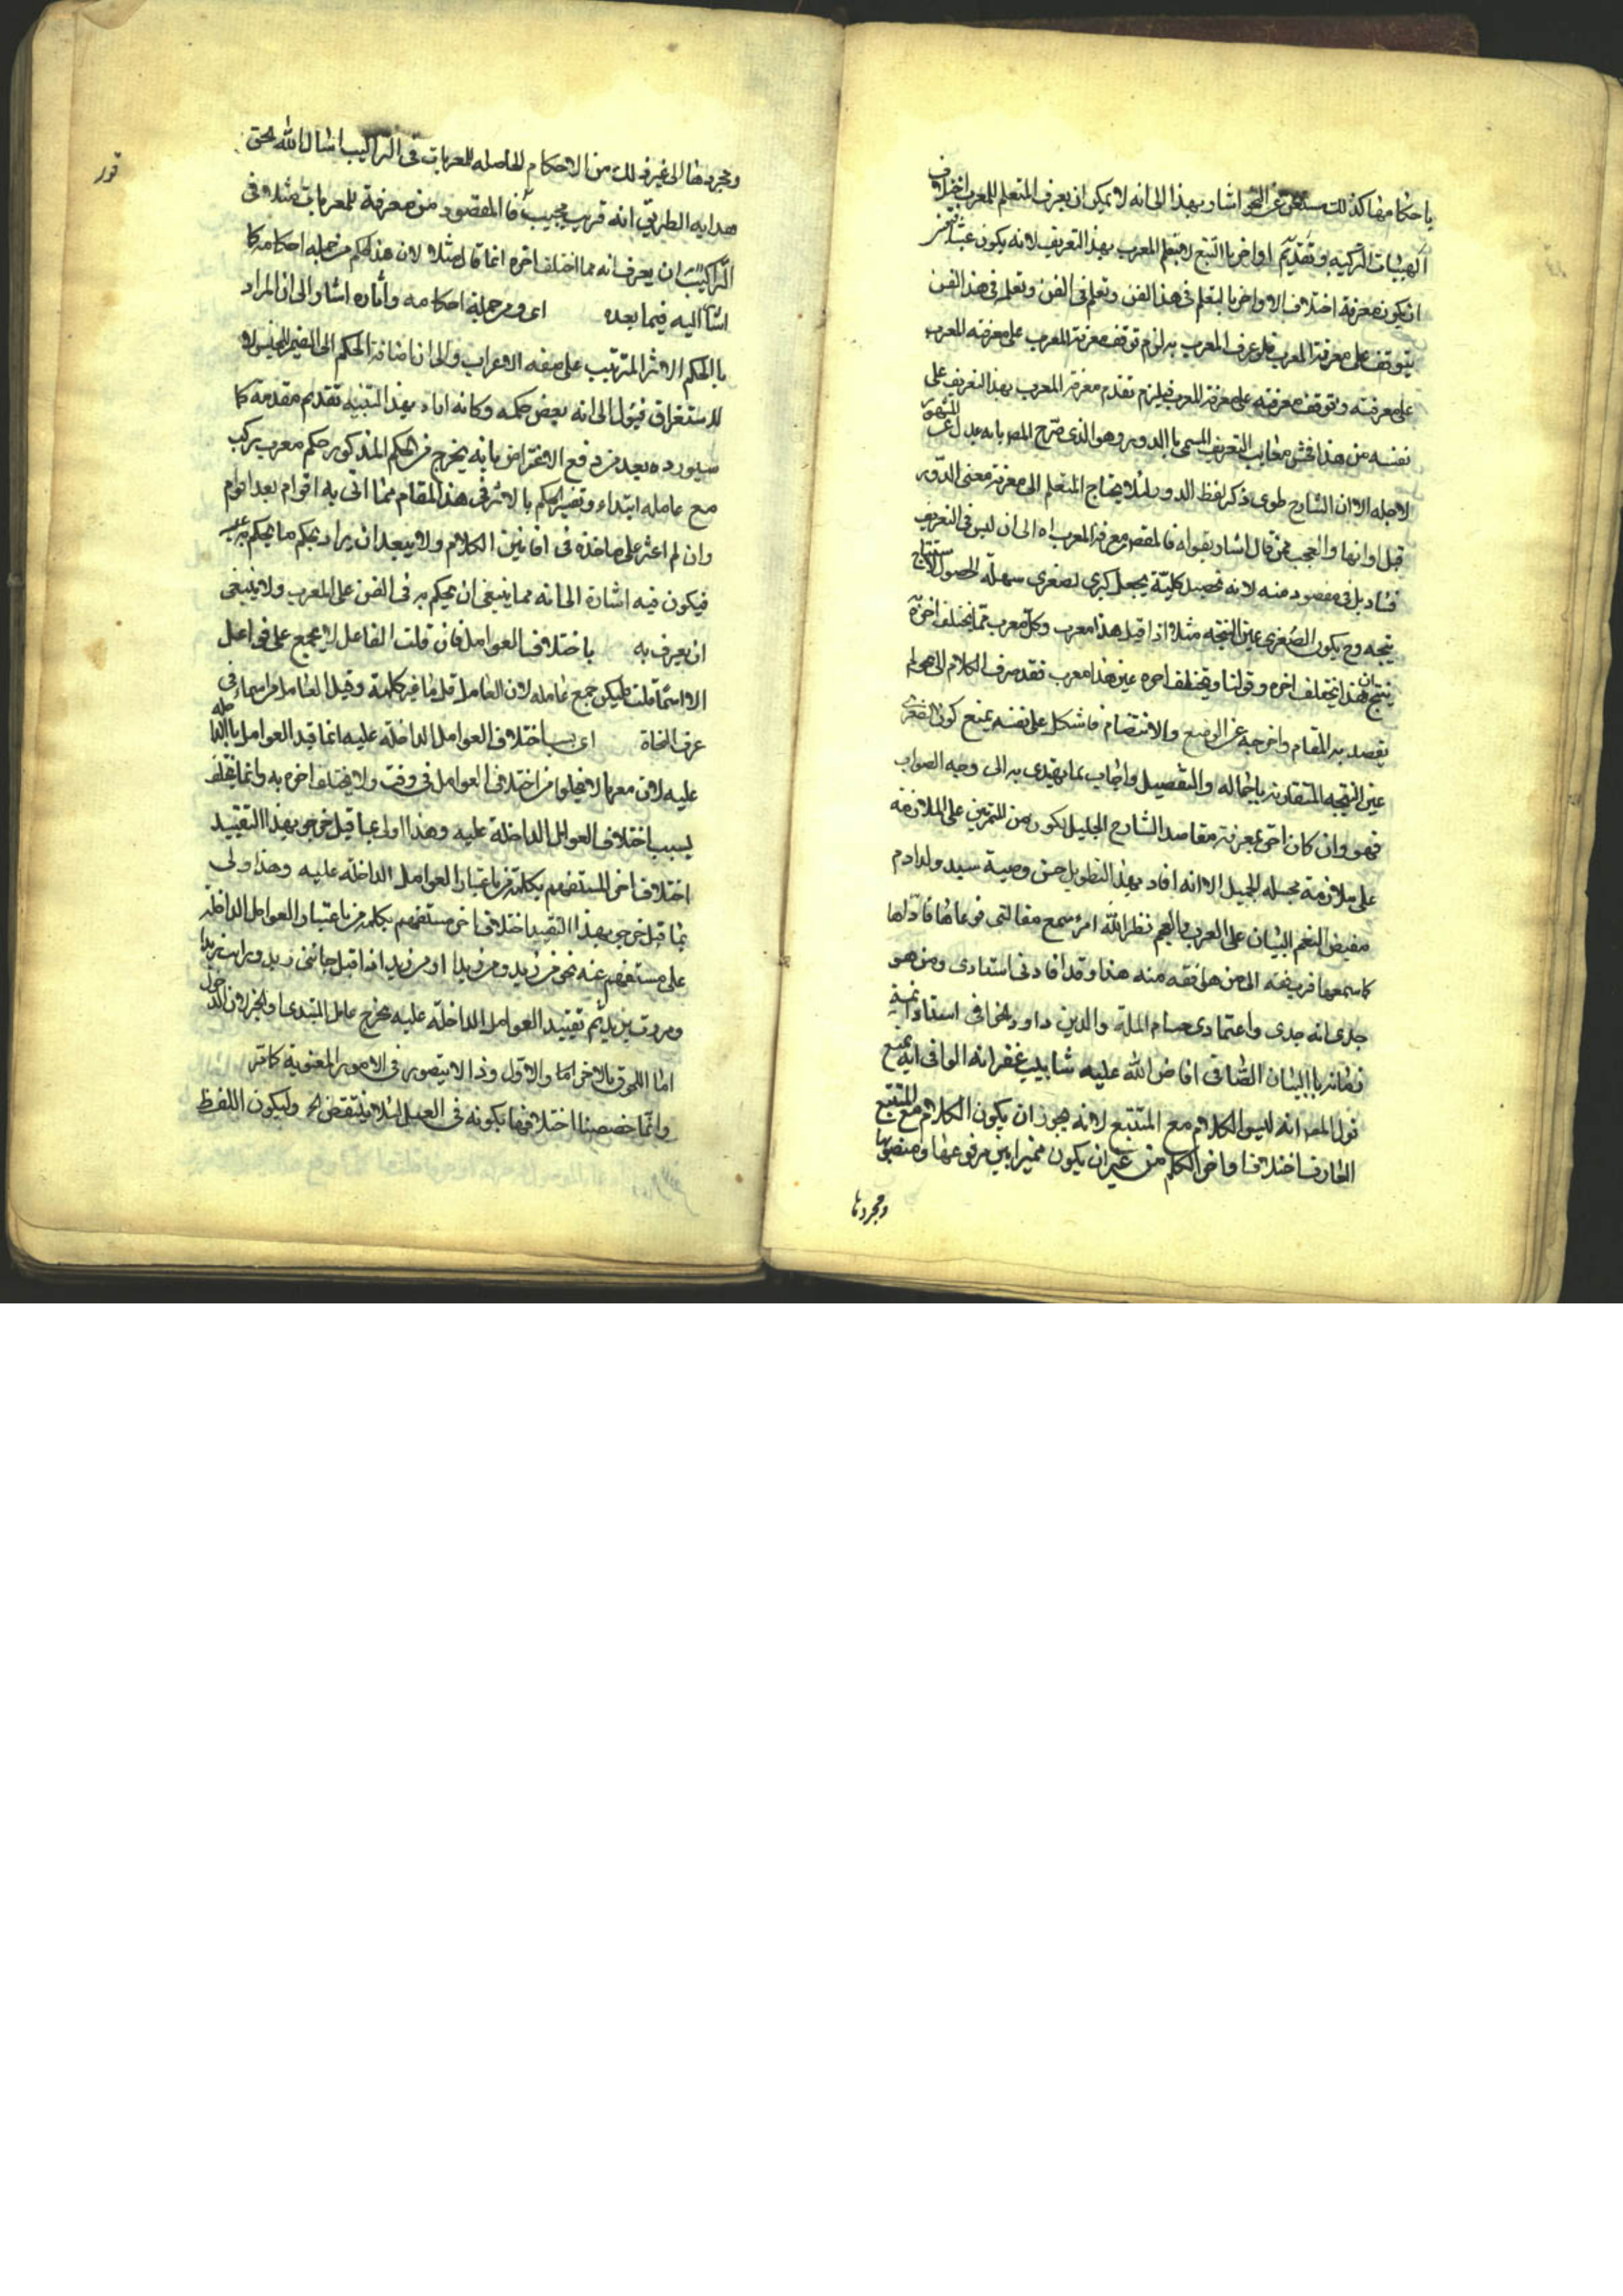 باحكامها كذلك مستغن عن النحو اشار بهذا الى انه لا يمكن ان يعرف المتعلم للمعرب اختلاف
الهيئات التركيبية وتقديم اواخر بالتتبع لا يتعلم المعرب بهذا التعريف لانه يكون عبثا
ان يكون معرفة اختلاف الاواخر بالتعلم في هذا الفن وتعلم في الفن وتعلم في هذا الفن
يتوقف على معرفة المعرب فلو عرف المعرب به لزم توقف معرفة المعرب على معرفة المعرب
على معرفته وتوقف معرفته على معرفة المعرب فيلزم تقدم معرفة المعرب بهذا التعريف على
نفسه من هذا افحش معايب التعريف المسمى بالدور وهو الذي صرح المص بانه عدل عن المشهور
لاجله الا ان الشارح طوى ذكر لفظ الدور لئلا يحتاج المتعلم الى معرفة معنى الدور
قبل اوانها والعجب ممن قال اشار بقوله فالمقصـ معرفة المعرب اه الى ان ليس في التعريف
فساد بل في مقصود منه لانه تحصيل كلية يجعل كبرى لصغرى سهلة الحصول لاستنتاج
نتيجه وح يكون الصغرى عين النتيجه مثلا اذا قيل هذا معرب وكل معرب مما يختلف اخره
ينتج ان هذا يختلف اخره وقولنا ويختلف اخره عين هذا معرب فقد صرف الكلام الى ما لم
يقصد به المقام واخرجه عن الوضع والانتظام فاشكل على نفسه بمنع كون الصغرى
عين النتيجه المتفاوته بالاجماله والتفصيل واجاب بما يهتدى به الى وجه الصواب
فهو وان كان احق بمعرفة مقاصد الشارح الجليل لكونه من المتمرنين على الملازمة
على ملازمة مجلسه الجميل الا انه افاد بهذا التطويل حسن وصية سيد ولد ادم
مفيض النعم البيان على العرب والعجم نظر الله امرء سمع مقالتي فوعاها فاداها
كما سمعها فرب فقه الى من هو افقه منه هذا وقد افادنى استادى ومن هو
جدى انه جدى واعتمادى حسام الملة والدين داود الخافى استاد ائمة
زمانه بالبيان الصافى افاض الله عليه شابيب غفرانه الوافى انه يمنع
قول المص انه ليس الكلام مع المتتبع لانه يجوز ان يكون الكلام مع المتتبع
العارف اختلاف اواخر الكلم من غير ان يكون مميزا بين مرفوعها ومنصوبها
ومجردها
ومجردها الى غير ذلك من الاحكام الحاصله للمعربات فى التراكيب اسال الله بحق
هدايه الطريق انه قريب مجيب فالمقصود من معرفة المعربات مثلا فى
التراكيب ان يعرف انه مما اختلف اخره انما قال مثلا لان هذا الحكم من جمله احكامه كما
اشار اليه فيما بعده اى ومن جملة احكامه واثاره اشار الى ان المراد
بالحكم الاثر المترتب على صفه الاعراب والى ان اضافة الحكم الى الضمير للجنس لا
للاستغراق فيؤل الى انه بعض حكمه وكانه اراد بهذا التنبيه تقديم مقدمة لما
سيورده بعد من دفع الاعتراض بانه يخرج من الحكم المذكور حكم معرب يركب
مع عامله ابتداء وتفسير الحكم بالاثر فى هذا المقام مما اتى به اقوام بعد اقوام
وان لم اعثر على ماخذه فى افانين الكلام ولا يبعد ان يراد بحكم ما يحكم به عليه
فيكون فيه اشارة الى انه مما ينبغى ان يحكم به فى الفن على المعرب ولا ينبغى
ان يعرف به باختلاف العوامل فان قلت الفاعل لا يجمع على فواعل
الا اسما قلت فليكن جمع عاملة لان العامل قل ما غير كلمة وقيل العامل من اسماء فى
عرف النحاة اى بسبب اختلاف العوامل الداخلة عليه انما قيد العوامل بالداخله
عليه لان معربا لا يخلوا من اختلاف العوامل فى وقت ولا يختلف اخره به وانما يختلف
بسبب اختلاف العوامل الداخلة عليه وهذا اولى عما قيل خرج بهذا التقييد
اختلاف اخر المستفهم بكلمة من باعتبار العوامل الداخلة عليه وهذا اولى
مما قيل خرج بهذا التقييد اختلاف اخر مستفهم بكلمه من باعتبار العوامل الداخلة
على مستفهم عنه نحو من زيد ومن زيدا او من زيد اذا قيل جائنى زيد ورايت زيدا
ومررت بزيد ثم تقييد العوامل الداخلة عليه مخرج عامل المبتدى والخبر لان الدخول
اما اللحوق بالاخر اما والاول وذا لا يتصور فى الامور المعنوية كما مر
وانما خصصنا اختلافها بكونه فى العمل لئلا ينتقض الخ وليكون اللفظ